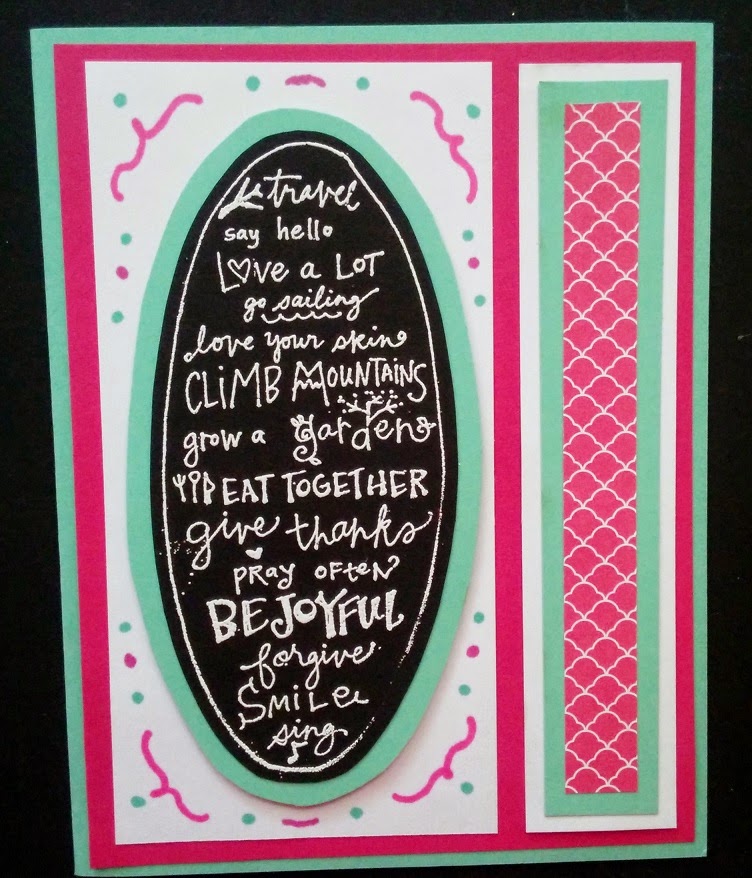 travel
say hello
Love a Lot
go sailing
love your skin
CLIMB MOUNTAINS
grow a garden
EAT TOGETHER
give thanks
pray often
BE JOYFUL
forgive
Smile
sing